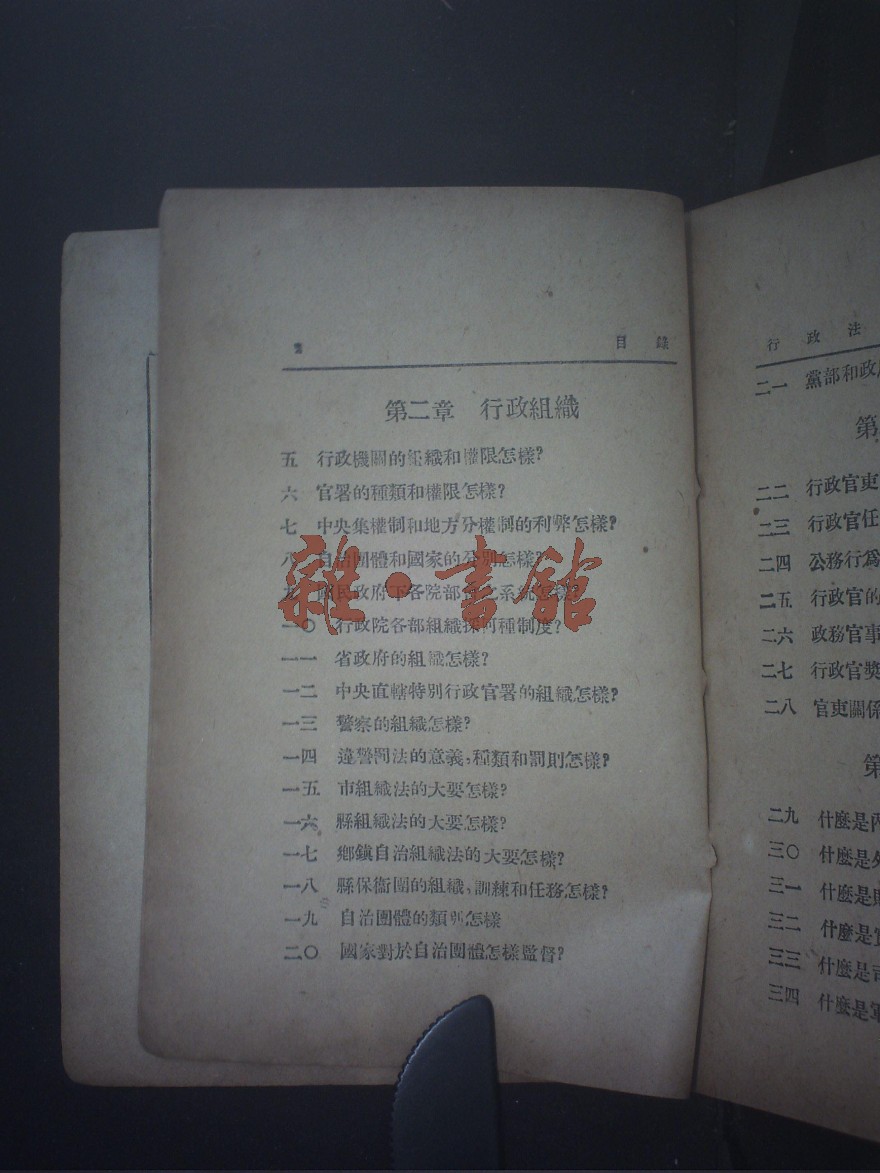 目錄
第二章 行政組織
五 行政機關的組織和權限怎樣?
六 官署的種類和權限怎樣?
七 中央集權制和地方分權制的利弊怎樣?
八 自治團體和國家的分別怎樣?
九 國民政府下各院部會之系統怎樣?
一〇 行政院各部組織採何種制度?
一一 省政府的組織怎樣?
一二 中央直轄特別行政官署的組織怎樣?
一三 警察的組織怎樣?
一四 違警罰法的意義、種類和罰則怎樣?
一五 市組織法的大要怎樣?
一六 縣組織法的大要怎樣?
一七 鄉鎮自治組織法的大要怎樣?
一八 縣保衞團的組織、訓練和任務怎樣?
一九 自治團體的類別怎樣
二〇 國家對於自治團體怎樣監督?
雜·書館
行政法
二一 黨部和政
第
二二 行政官吏
二三 行政官任
二四 公務行爲
二五 行政官的
二六 政務官事
二七 行政官獎
二八 官吏關係
第
二九 什麼是內
三〇 什麼是外
三一 什麼是財
三二 什麼是
三三 什麼是
三四 什麼是軍